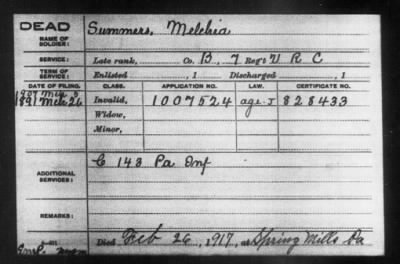 DEAD
NAME OF SOLDIER: Summers, Melchia
SERVICE: Late rank, Co. B, 7 Reg't V R C
TERM OF SERVICE: Enlisted , 1 Discharged , 1
DATE OF FILING. CLASS. APPLICATION NO. LAW. CERTIFICATE NO.
1907
1891 Mch 26 Invalid, 1007524 age. J 828433
Widow,
Minor,
ADDITIONAL SERVICES: C 148 Pa Inf
REMARKS:
Died Feb 26, 1917, at Spring Mills Pa